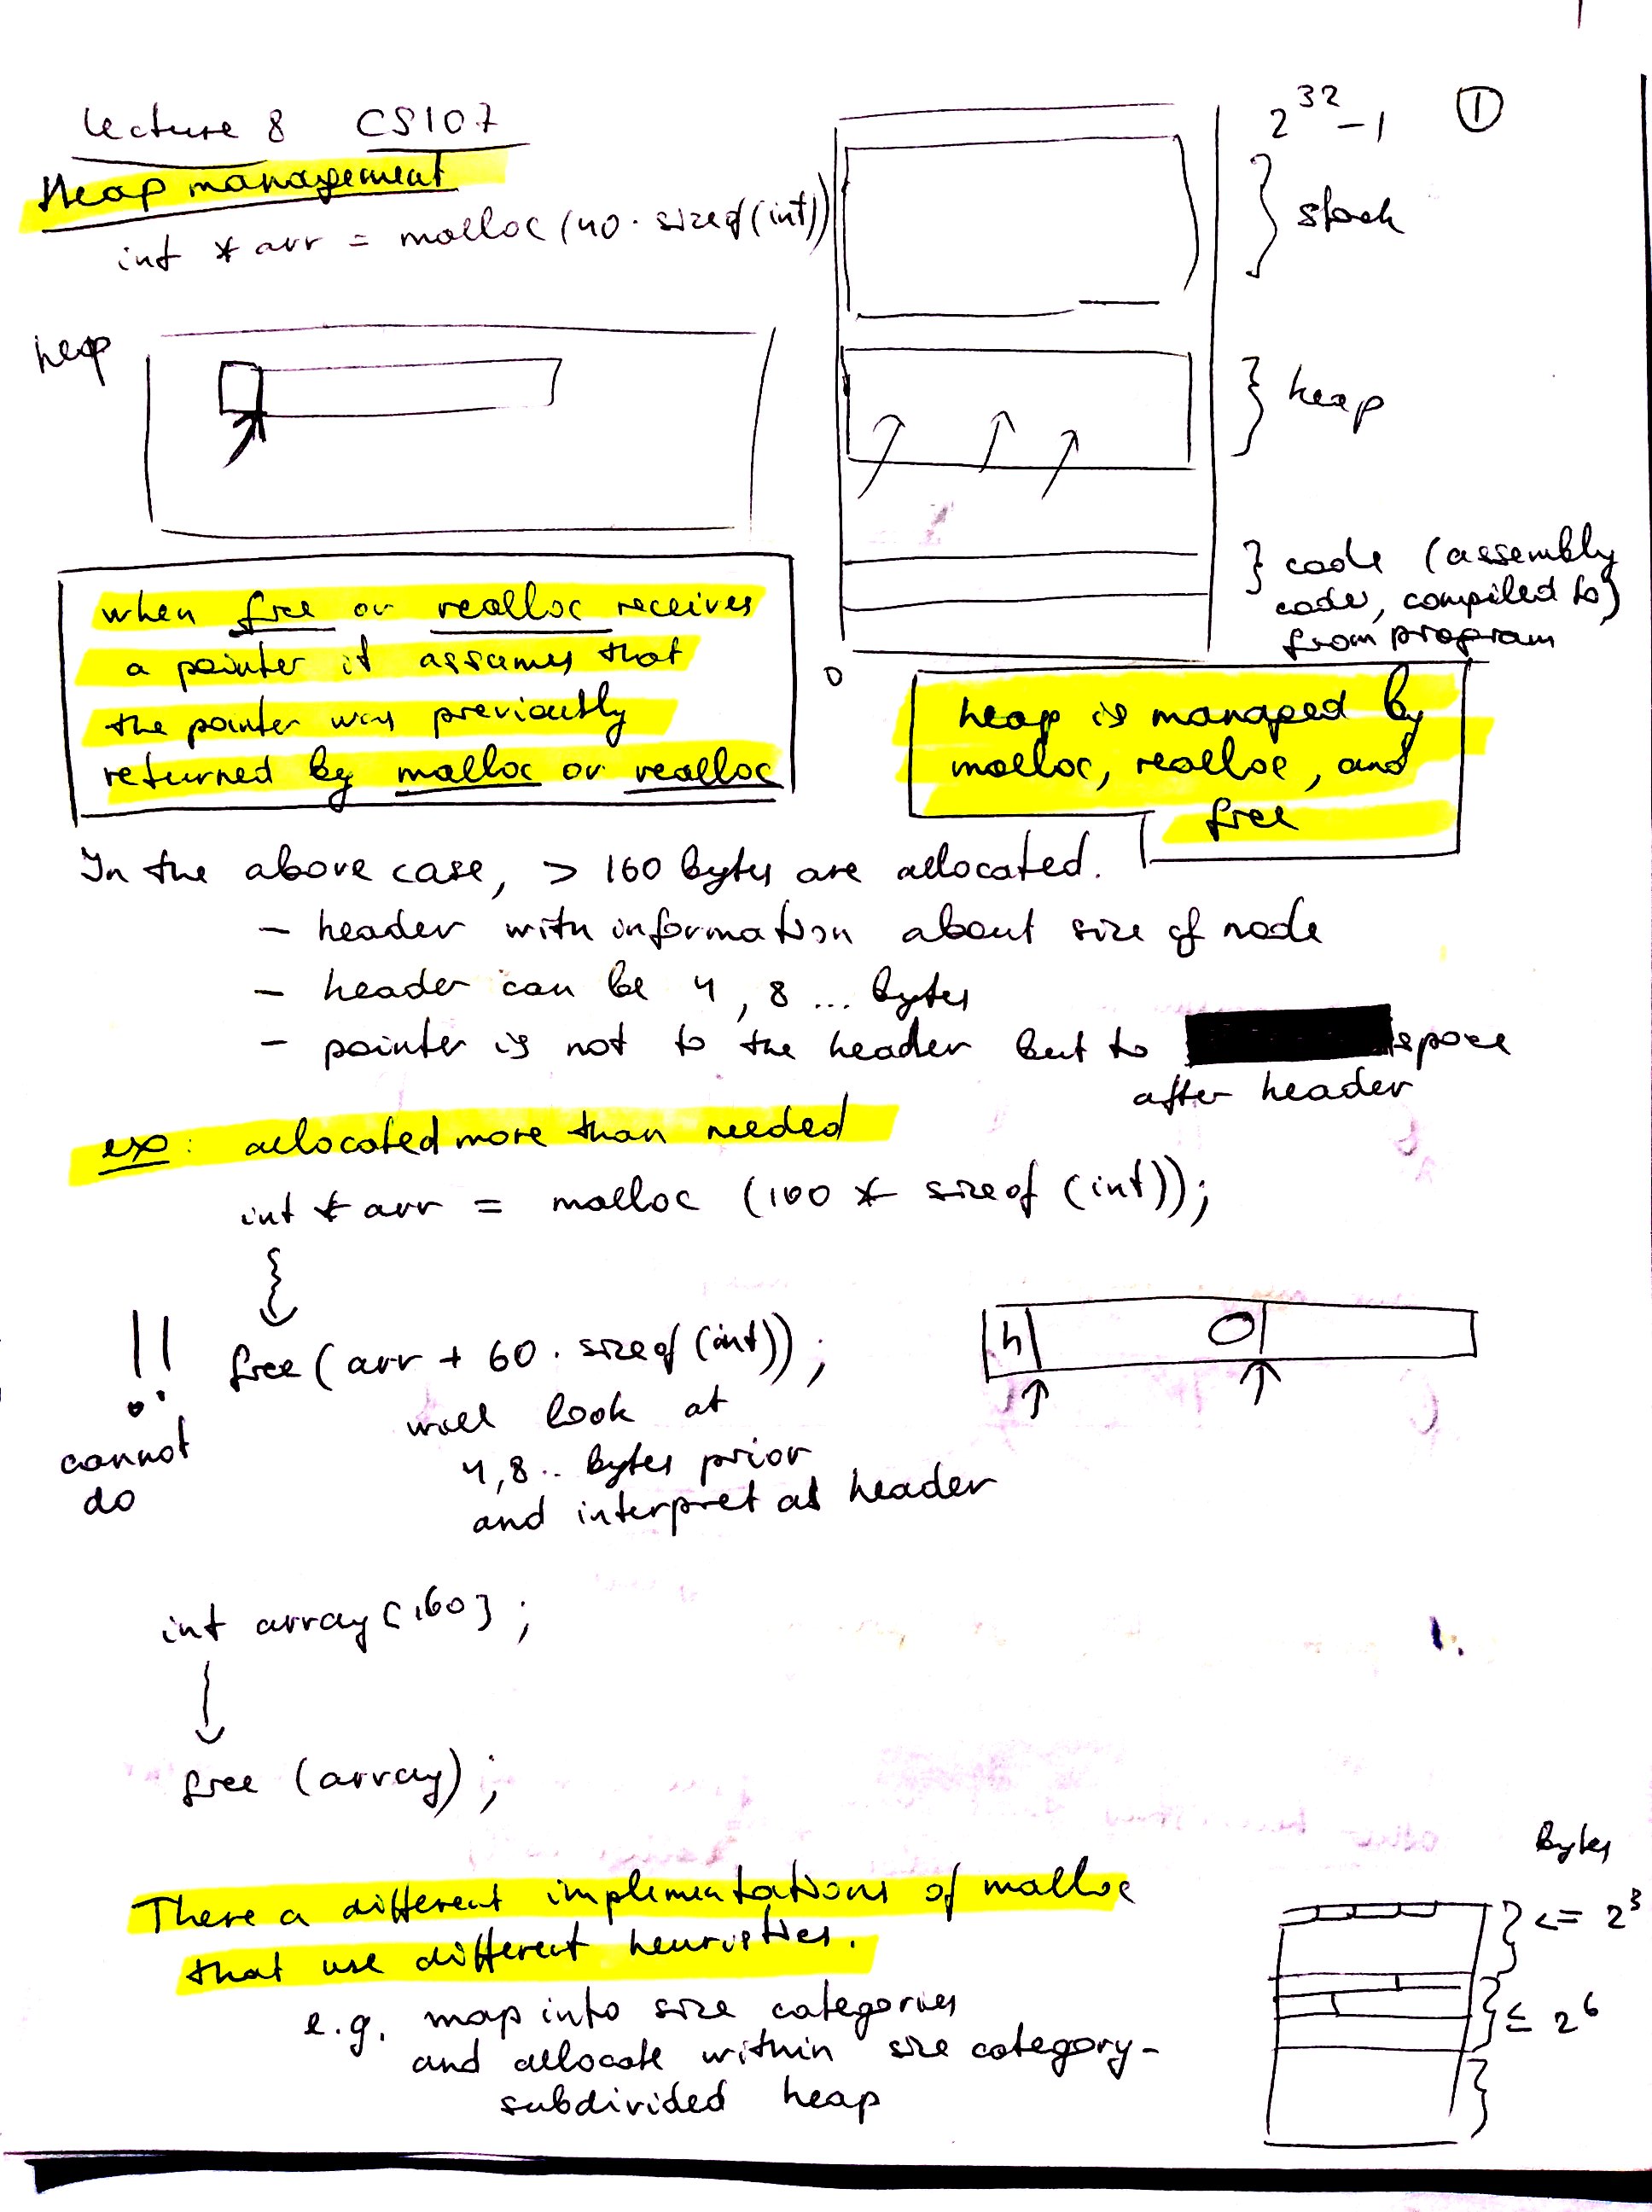 Lecture 8 CS107
Heap management
int * arr = malloc (40 · sizeof (int))
2^32 - 1
①
} stack
heap
} heap
} code (assembly
code, compiled to)
from program
0
when free or realloc receives
a pointer it assumes that
the pointer was previously
returned by malloc or realloc
heap is managed by
malloc, realloc, and
free
In the above case, > 160 bytes are allocated.
- header with information about size of node
- header can be 4, 8 ... bytes
- pointer is not to the header but to space
after header
exp: allocated more than needed
int * arr = malloc (100 * sizeof (int));
!! free (arr + 60 · sizeof (int));
cannot
do
will look at
4, 8.. bytes prior
and interpret as header
h
int array [160];
free (array);
There a different implementations of malloc
that use different heuristics.
e.g. map into size categories
and allocate within size category -
subdivided heap
Bytes
} <= 2^3
} ≤ 2^6
}